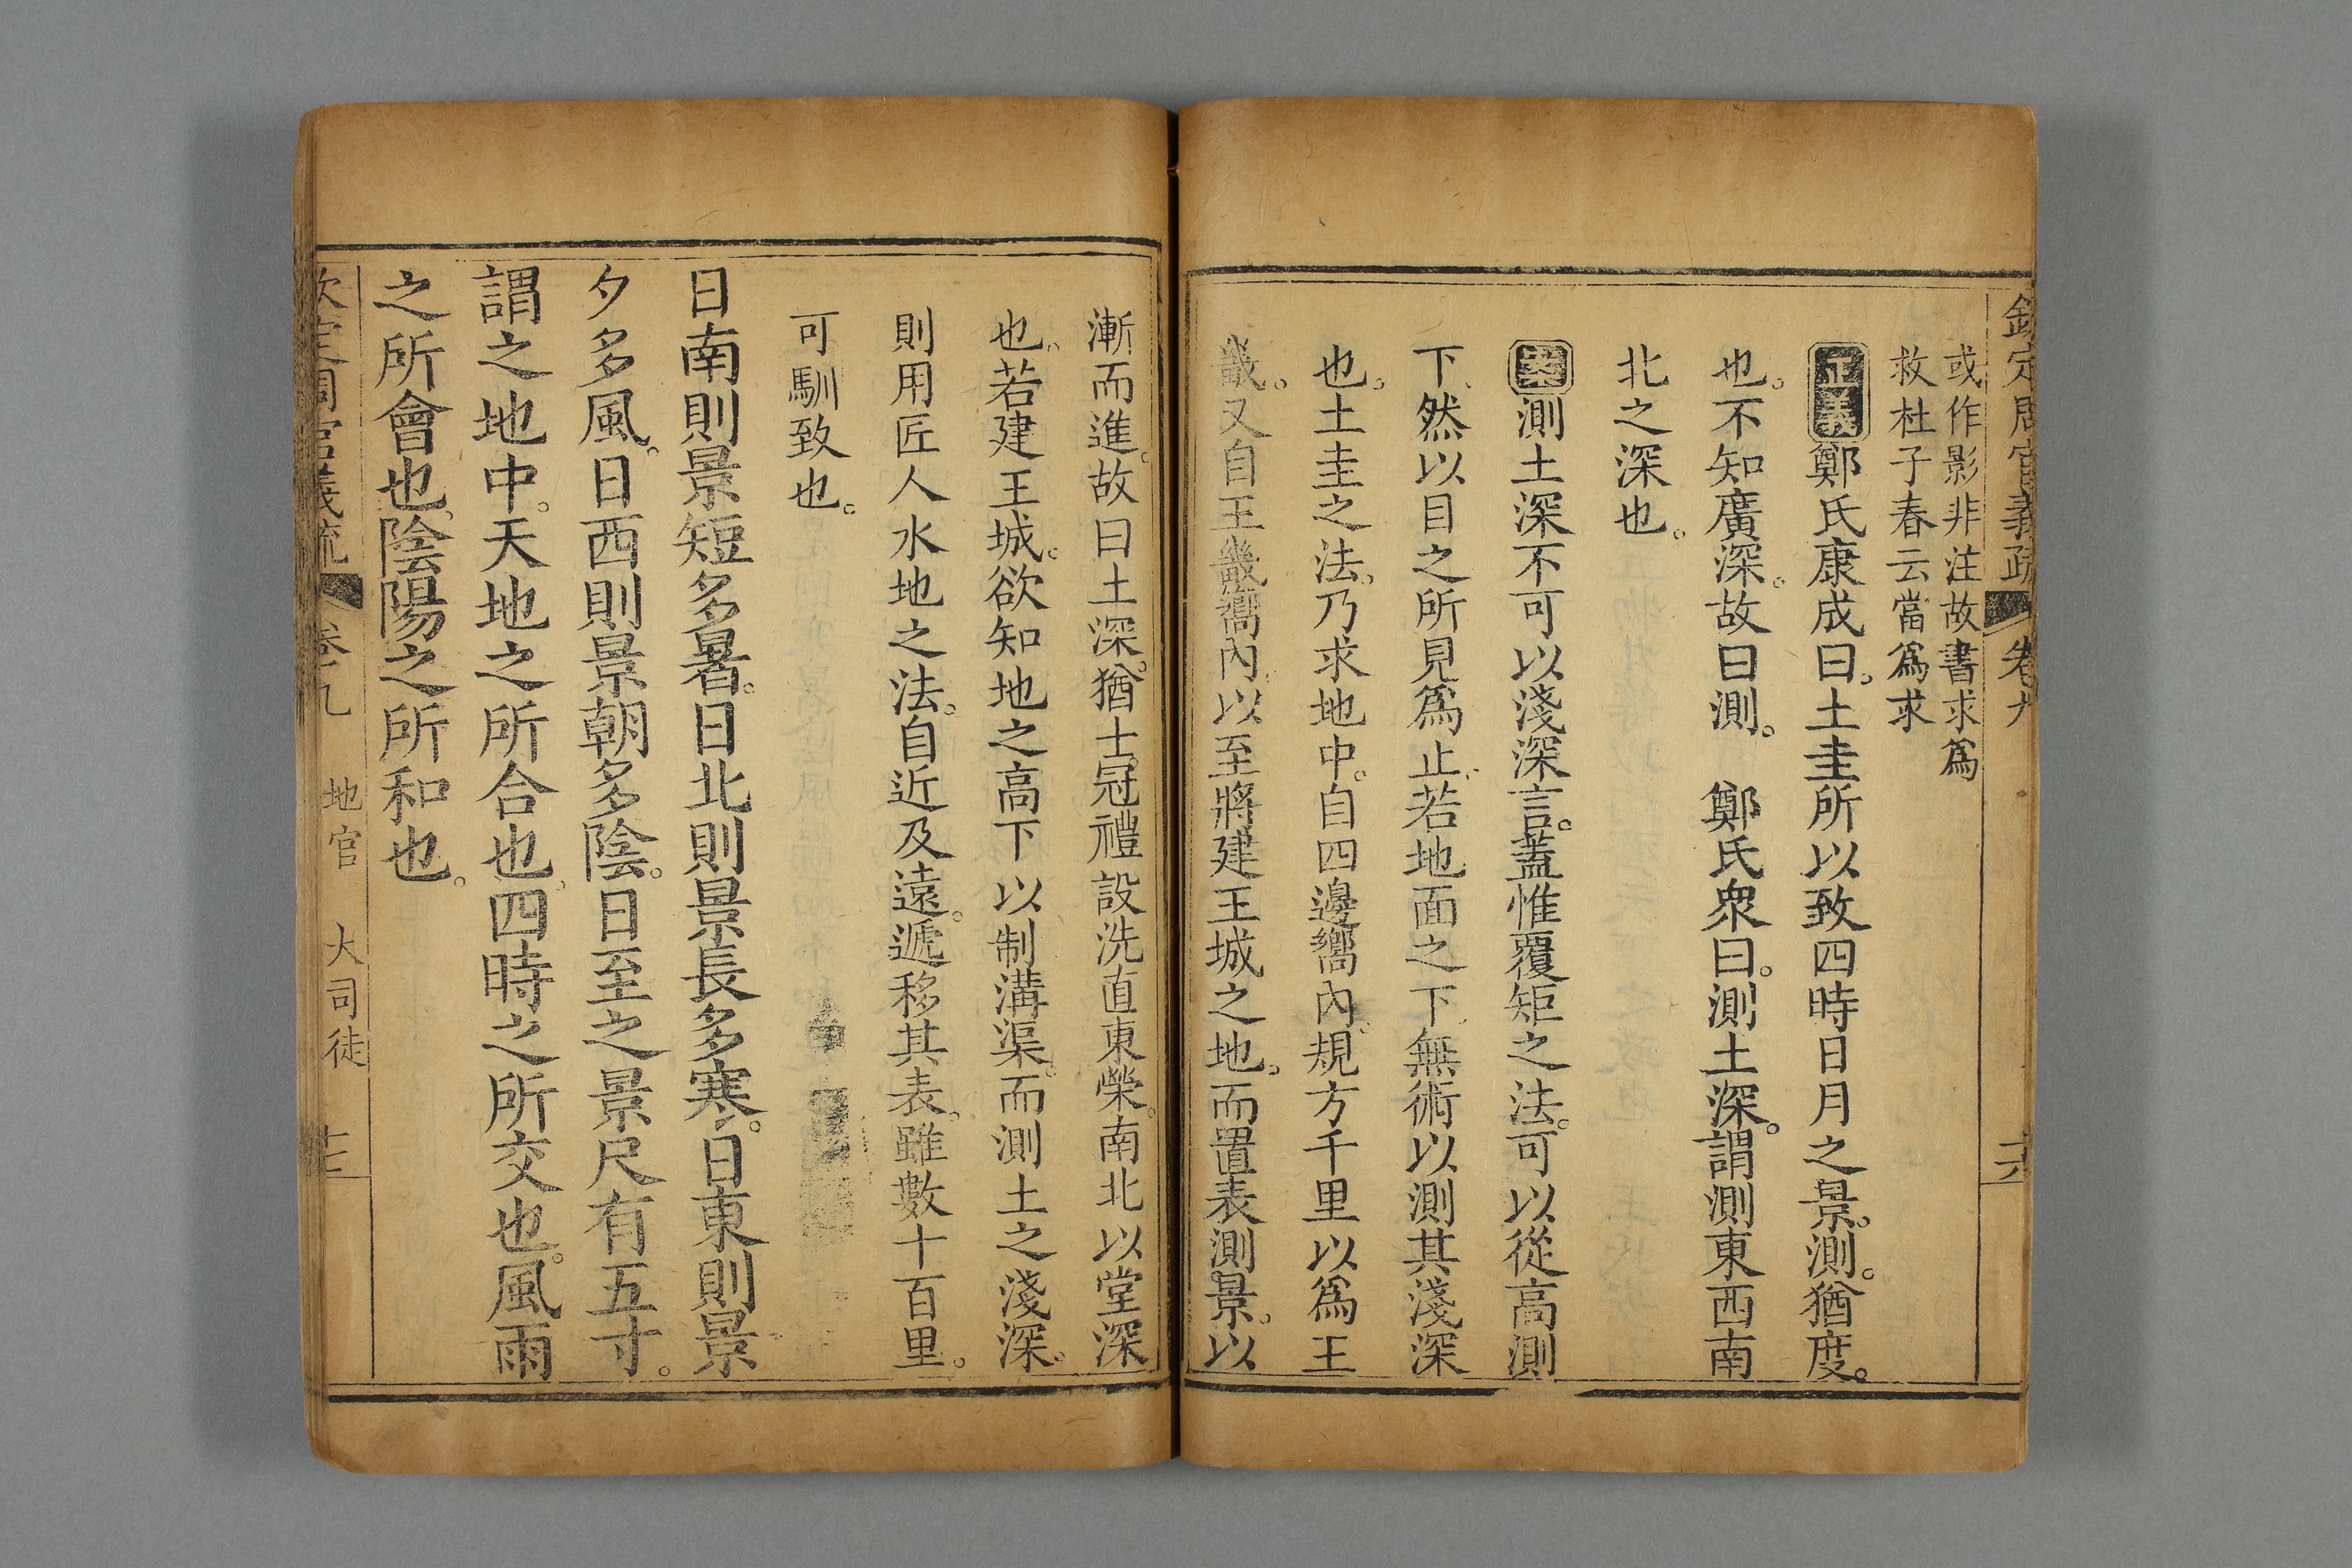 欽定周官義疏 卷九 十六
或作影非注故書求爲
救杜子春云當爲求
正義鄭氏康成曰。土圭所以致四時日月之景。測。猶度。
也。不知廣深。故曰測。 鄭氏衆曰。測土深。謂測東西南
北之深也。
案測土深不可以淺深言。蓋惟覆矩之法。可以從高測
下。然以目之所見爲止。若地面之下。無術以測其淺深
也。土圭之法。乃求地中。自四邊嚮內。規方千里以爲王
畿。又自王畿嚮內。以至將建王城之地。而置表測景。以
漸而進。故曰土深。猶士冠禮設洗直東榮。南北以堂深
也。若建王城。欲知地之高下以制溝渠。而測土之淺深。
則用匠人水地之法。自近及遠。遞移其表。雖數十百里。
可馴致也。
日南則景短多暑。日北則景長多寒。日東則景
夕多風。日西則景朝多陰。日至之景尺有五寸。
謂之地中。天地之所合也。四時之所交也。風雨
之所會也。陰陽之所和也。
欽定周官義疏 卷九 地官 大司徒